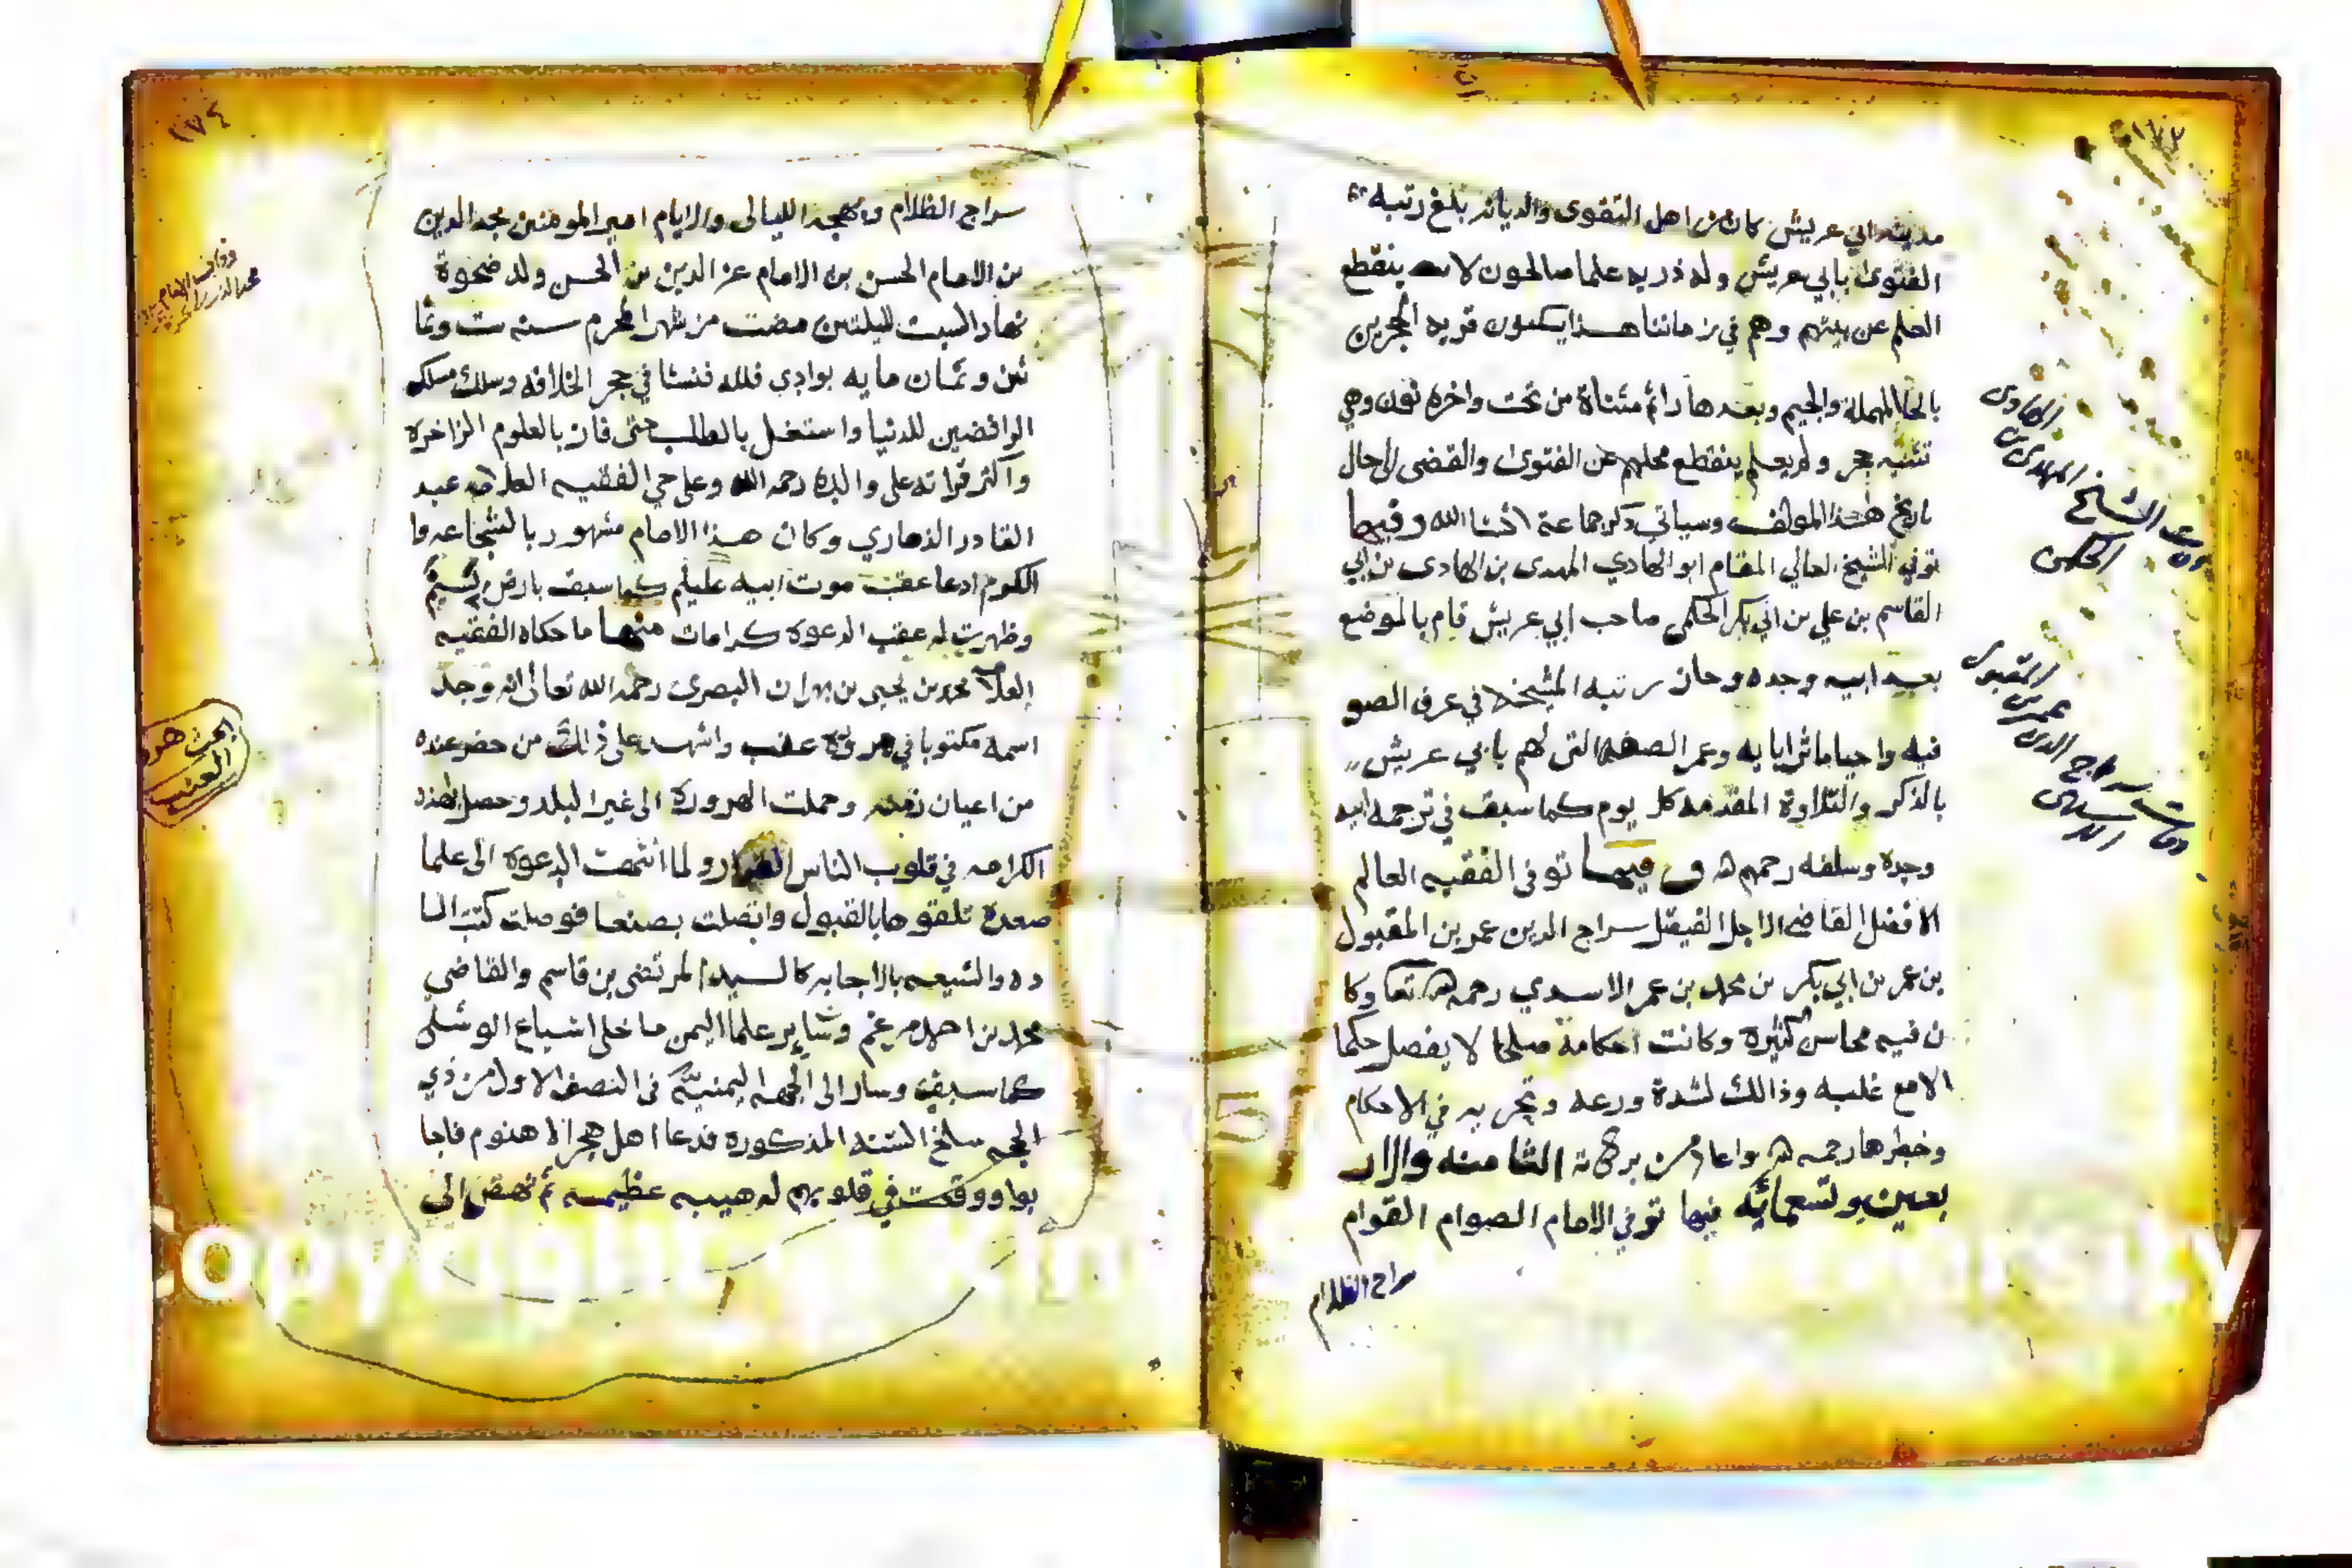 ١٧٣
مدينة ابي عريش كان من اهل التقوى والديانه بلغ رتبه
الفتوى بابي عريش وله ذريه علما صالحون لا ينقطع
العلم عن بيتهم وهم في زماننا هذا يسكنون قريه الحجرين
بالحا المهملة والجيم وبعدها را ثم مثناة من تحت واخره نون وهي
تثنيه حجر ولم ينقطع محلهم عن الفتوى والقضى الى حال
تاريخ هذا المولف وسياتي ذكر جماعة انشا الله وفيها
توفي الشيخ العالي المقام ابو الهادي المهدي بن الهادي بن ابي
القاسم بن علي بن ابي بكر الحكمي صاحب ابي عريش قام بالموضع
بعد ابيه وجده وحاز رتبه المشيخه في عرف الصو
فيه واحيا ماثر ابايه وعمر الصفه التي لهم بابي عريش
بالذكر والتلاوة المقدمه كل يوم كما سبق في ترجمه ابيه
وجده وسلفه رحمهم الله وفيها توفى الفقيه العالم
الافضل القاضي الاجل الفيصل سراج الدين عمر بن المقبول
بن عمر بن ابي بكر بن محمد بن عمر الاسدي رحمه الله تعا وكا
ن فيه محاسن كثيرة وكانت احكامه صلحا لا يفصل حكما
الا مع غلبه وذالك لشدة ورعه وتحريه في الاحكام
وخطرها رحمه الله واعاد من بركاته الثامنه والار
بعين وتسعمائه فيها توفي الامام الصوام القوام
سراج الظلام
وفات الشيخ المهدي بن الهادي
الحكمي
وفات سراج الدين عمر بن المقبول
الاسدي
١٧٤
سراج الظلام وبهجه الليالى والايام امير المومنين مجد الدين
بن الامام الحسن بن الامام عز الدين بن الحسن ولد ضحوة
نهار السبت لليلتين مضت من شهر المحرم سنه ست وثما
نين وثمان مايه بوادي فلله فنشا في حجر الخلافه وسلك مسلك
الرافضين للدنيا واستغل بالطلب حتى فاز بالعلوم الزاخرة
واكثر قراته على والده رحمه الله وعلى حي الفقيه العلامه عبد
القادر الذماري وكان هذا الامام مشهور بالشجاعه وا
لكرم ادعا عقب موت ابيه عليلم كما سبق بارض
وظهرت له عقب الدعوة كرامات منها ما حكاه الفقيه
العلامه محمد بن يحيى بن بهران البصري رحمه الله تعالى انه وجد
اسمه مكتوبا في ورقة عنب واشهد على ذالك من حضر عنده
من اعيان زمنه وحملت الورقة الى غير البلد وحصل لهذه
الكرامه في قلوب الناس ولما انتهت الدعوة الى علما
صعدة تلقوها بالقبول واتصلت بصنعا فوصلت كتب السا
ده والشيعه بالاجابه كالسيد المرتضى بن قاسم والقاضي
محمد بن احمد مرغم وسائر علما اليمن ما خلى اشياع الوشلي
كما سبق وسار الى الجهه اليمنيه في النصف الاول من ذي
الحجه سلخ السنه المذكوره فدعا اهل هجر الاهنوم فاجا
بوا ووقعت في قلوبهم له هيبه عظيمه ثم نهض الى
وفات الامام
مجد الدين بن الحسن
بحث هذه
العنب
Copyright King University